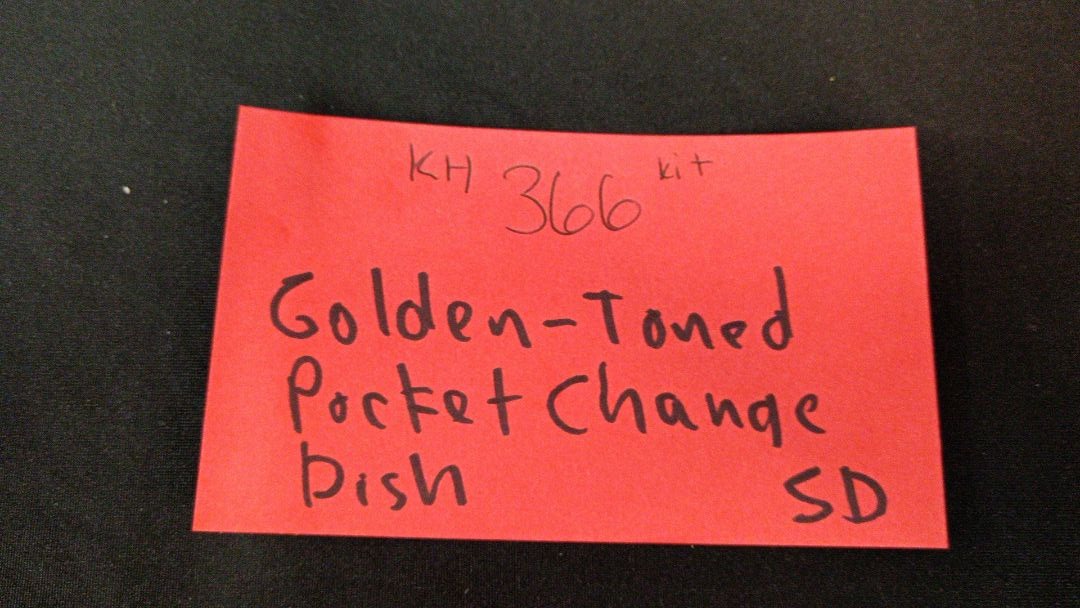 KH 366 kit
Golden-Toned
Pocket Change
Dish SD